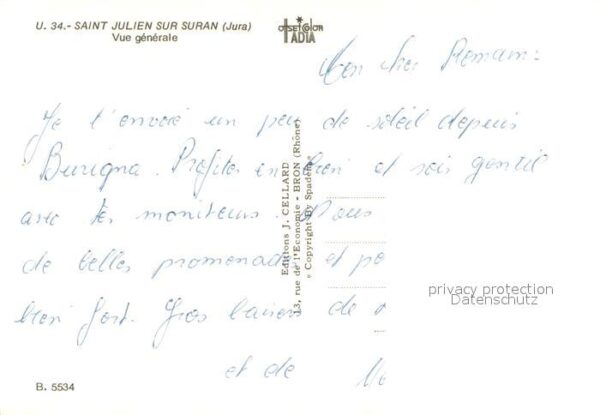 U. 34.- SAINT JULIEN SUR SURAN (Jura)
Vue générale
OFSETCOLOR
IADIA
Mon cher Romain:
Je t'envoie un peu de soleil depuis
Profites en bien et sois gentil
avec tes moniteurs. Nous
de belles promenades et
bien fort. Gros baisers de
et de
Editions J. CELLARD
13, rue de l'Economie - BRON (Rhône)
« Copyright By Spadem »
privacy protection
Datenschutz
B. 5534